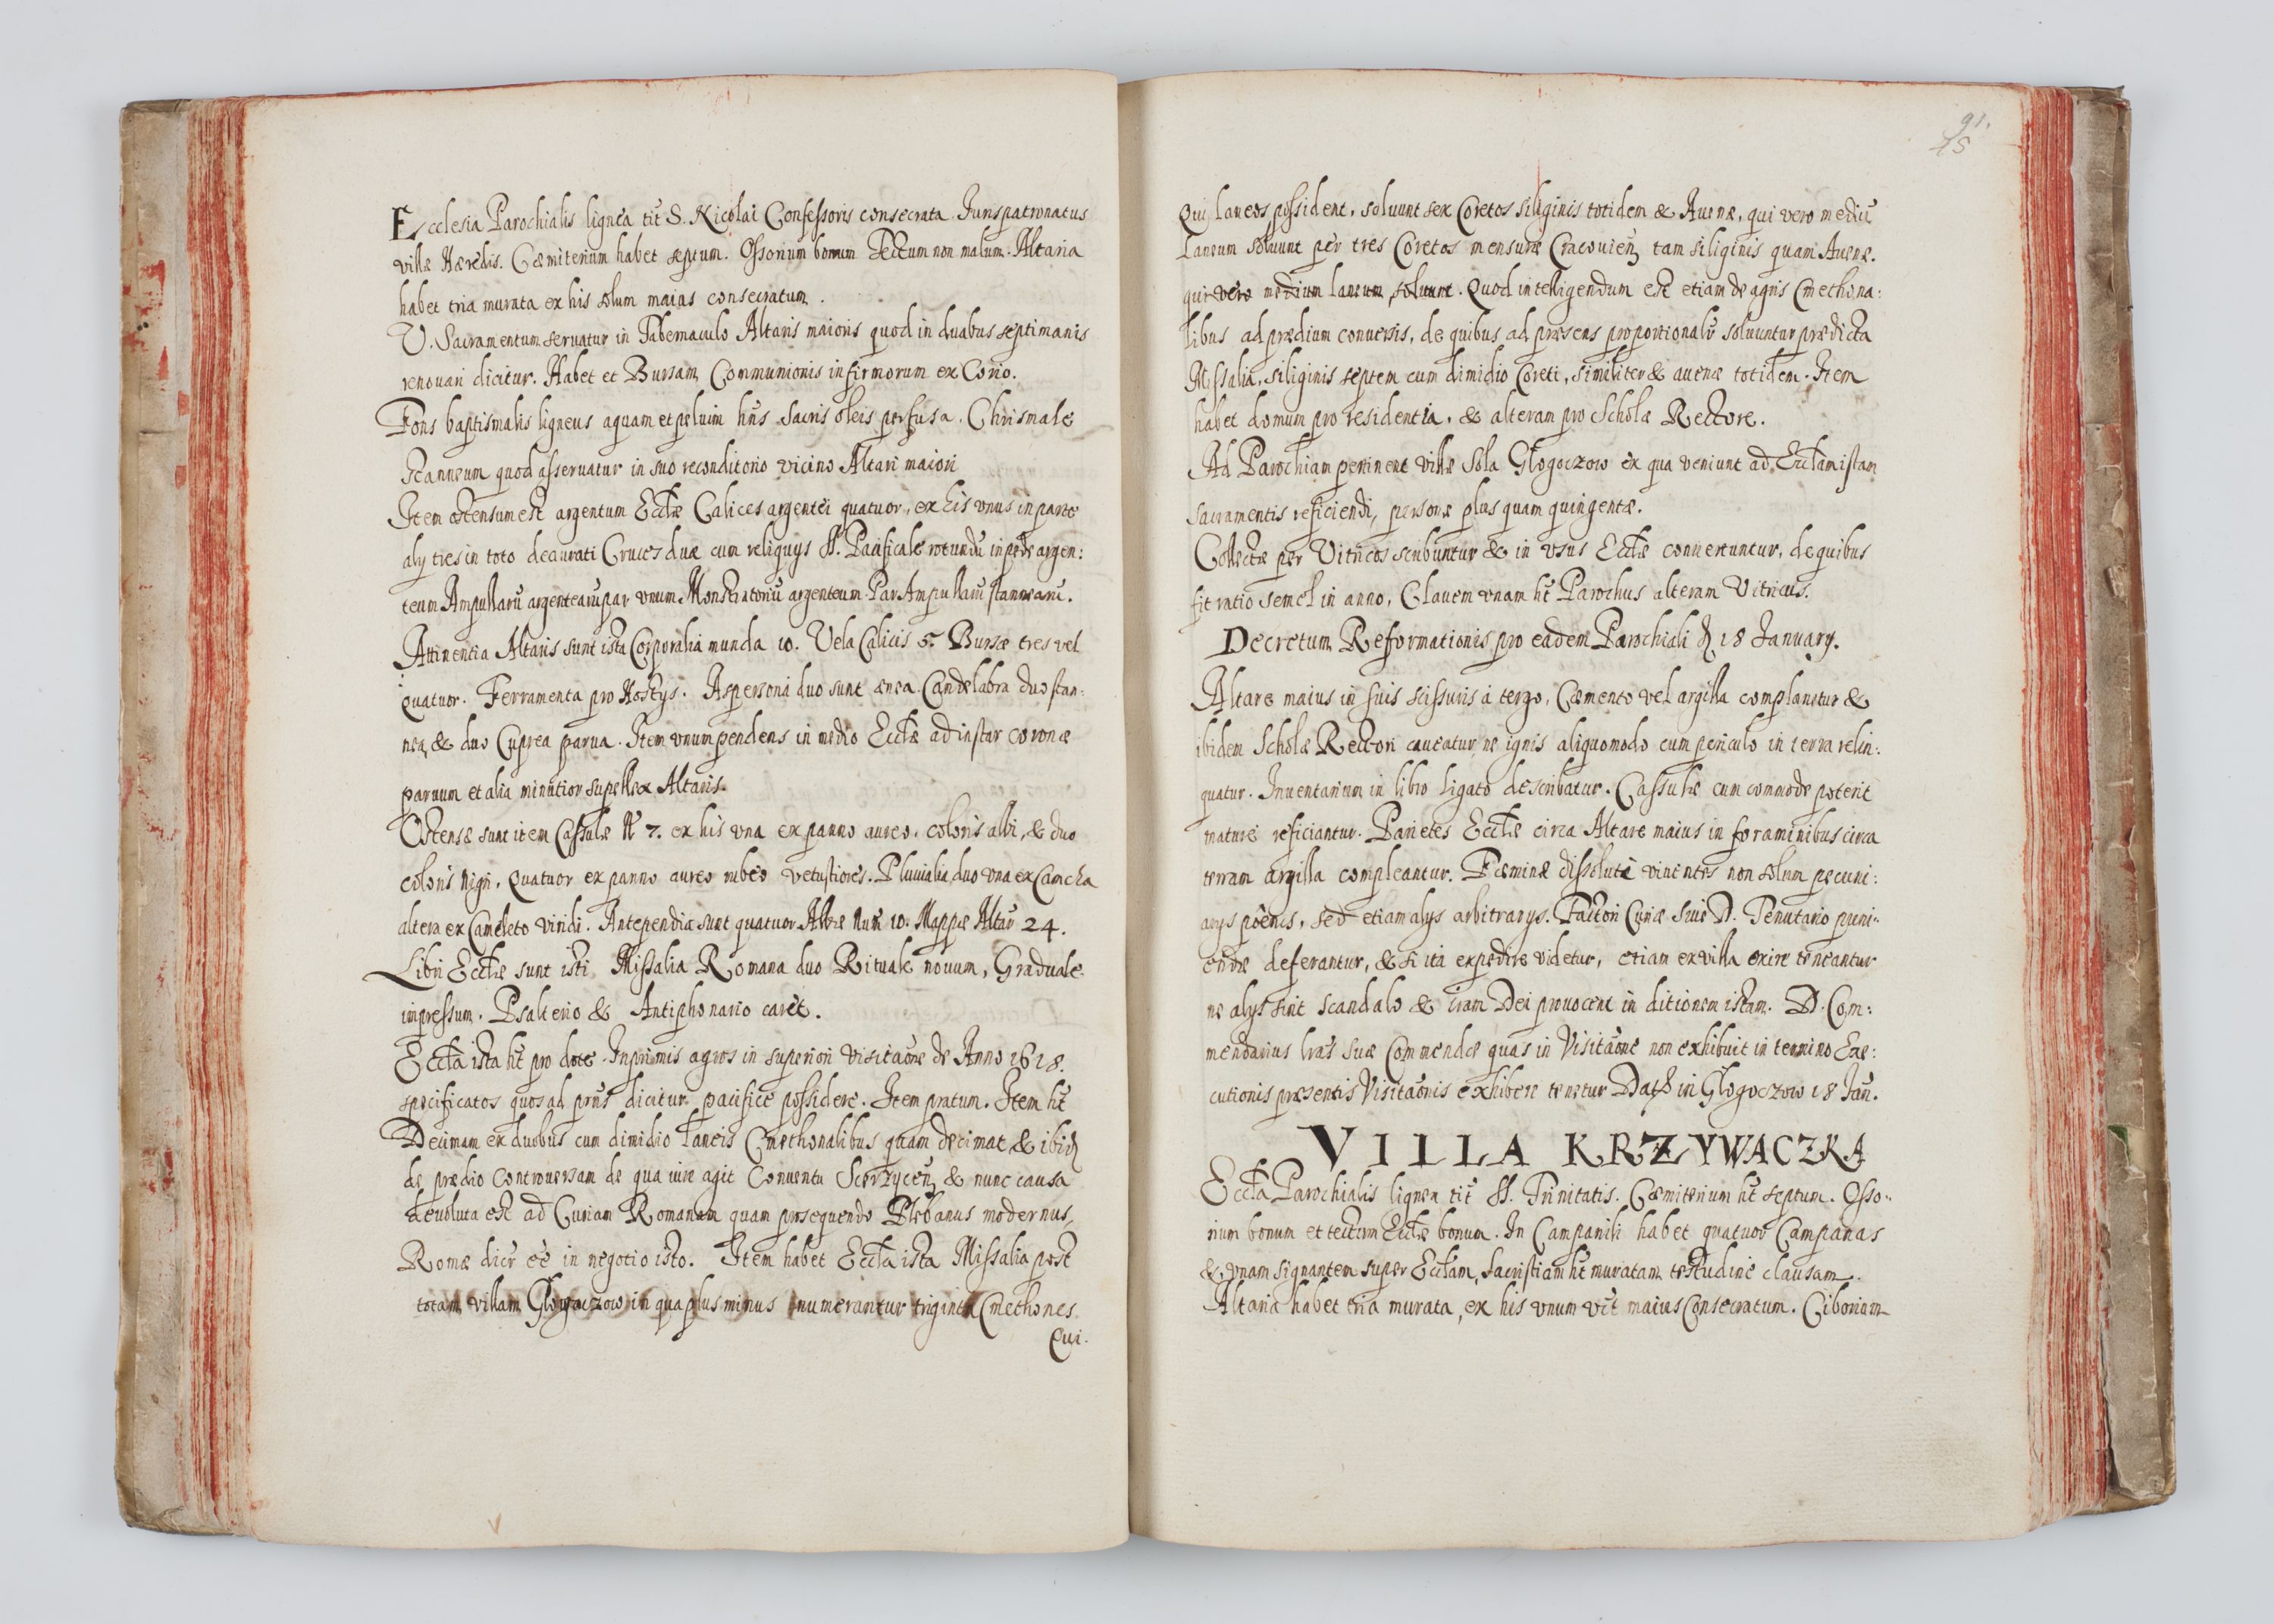 Ecclesia Parochialis lignea tit̃ S. Nicolai Confessoris consecrata. Iurispatronatus
villæ Hæredis. Cæmiterium habet septum. Ossorium bonum Tectum non malum. Altaria
habet tria murata ex his solum maius consecratum.
V. Sacramentum seruatur in Tabernaculo Altaris maioris quod in duabus septimanis
renouari dicitur. Habet et Bursam Communionis infirmorum ex Corio.
Fons baptismalis ligneus aquam et peluim hñs Sacris oleis perfusa. Chrismale
Stanneum quod asseruatur in suo reconditorio vicino Altari maiori
Item ostensum est argentum Ecclæ Calices argentei quatuor, ex his vnus in parte
alÿ tres in toto deaurati Cruces duæ cum reliquÿs SS. Pacificale rotundũ in pede argen:
teum Ampullarũ argentearũ par vnum Monstratoriũ argenteum Par Ampullarũ stannearũ.
Attinentia Altaris sunt ista Corporalia munda 10. Vela Calicis 5. Bursæ tres vel
quatuor. Ferramenta pro Hostÿs. Aspersoria duo sunt ænea. Candelabra duo stan:
nea & duo Cuprea parua. Item vnum pendens in medio Ecclæ ad instar coronæ
paruum et alia minutior supellex Altaris.
Ostensæ sunt item Casulæ N° 7. ex his vna ex panno aureo, coloris albi, & duo
coloris nigri, quatuor ex panno aureo rubeo vetustiores. Pluuialia duo vna ex Camcha
altera ex Cameleto viridi. Antependia sunt quatuor Albæ Num̃ 10. Mappæ Altar̃ 24.
Libri Ecclæ sunt isti Missalia Romana duo Rituale nouum, Graduale
impressum. Psalterio & Antiphonario caret.
Eccl̃a ista ht̃ pro dote. Inprimis agros in superiori Visitac̃one de Anno 1618.
specificatos quos ad pñs dicitur pacifice possidere. Item pratum. Item ht̃
Decimam ex duobus cum dimidio laneis Cmethonalibus quam decimat & ibid
de prædio controuersam de qua iure agit Conuentu Scerzÿceñ & nunc causa
deuoluta est ad Curiam Romanam quam prosequendo Plebanus modernus
Romæ dicr̃ eẽ in negotio isto. Item habet Eccl̃a ista Missalia post
totam villam Głogoczow in qua plus minus numerantur triginta Cmethones.
Qui.
91.
45
Qui laneos possident, soluunt sex Coretos siliginis totidem & Auenæ, qui vero mediũ
Laneum soluunt per tres Coretos mensuræ Cracouień tam siliginis quam Auenæ.
qui vero medium laneum soluunt. Quod intelligendum est etiam de agris Cmethona:
libus ad prædium conuersis, de quibus ad præsens proportionalr̃ soluuntur prædicta
Missalia, siliginis septem cum dimidio Coreti, similiter & auenæ totidem. Item
habet domum pro residentia, & alteram pro Scholæ Rectore.
Ad Parochiam pertinent villæ Sola Głogoczow ex qua veniunt ad Eccl̃am istam
Sacramentis reficiendi, personæ plus quam quingentæ.
Collectæ per Vitricos scribuntur & in vsus Ecclæ conuertuntur, de quibus
fit ratio semel in anno, Clauem vnam ht̃ Parochus alteram Vitricus.
Decretum Reformationis pro eadem Parochiali d. 18 Januarÿ.
Altare maius in suis scissuris a tergo, Cæmento vel argilla complanetur &
ibidem Scholæ Rectori caueatur ne ignis aliquomodo cum periculo in terra relin:
quatur. Inuentarium in libro ligato describatur. Casulæ cum commode poterit
mature reficiantur. Parietes Ecclæ circa Altare maius in foraminibus circa
terram argilla compleantur. Fæminæ dissolute viuentes non solum pecuni:
arÿs pœnis, sed etiam alÿs arbitrarÿs. Factori Curiæ siue D. Tenutario puni:
endæ deferantur, & si ita expedire videtur, etiam ex villa exire teneantur
ne alÿs sint scandalo & iram Dei prouocent in ditionem istam. D. Com:
mendarius lr̃as suæ Commendæ quas in Visitac̃one non exhibuit in termino Exe:
cutionis præsentis Visitac̃onis exhibere tenetur Dat̃ in Głogoczow 18 Jañ.
VILLA KRZYWACZKA
Eccl̃a Parochialis lignea tit̃ SS. Trinitatis. Cæmiterium ht̃ septum. Osso:
rium bonum et tectum Ecclæ bonum. In Campanili habet quatuor Campanas
& vnam signantem super Eccl̃am, Sacristiam ht̃ muratam testudine clausam.
Altaria habet tria murata, ex his vnum vr̃ maius Consecratum. Ciborium